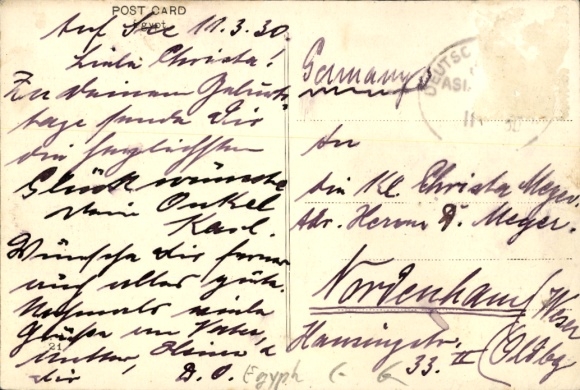 POST CARD
Egypt
Auf See 11.3.30.
Liebe Christa!
Zu deinem Geburts-
tage sende dir
die herzlichsten
Glückwünsche
dein Onkel
Karl.
Wünsche dir ferner
auch alles gute.
Nochmals viele
Grüße an Vater,
Mutter, Heino &
dir D. O.
21
Egyph
Germany
DEUTSC
ASI
11
30
An
die Kl. Christa Meyer.
Adr. Herrn D. Meyer.
Nordenham
(Weser
Oldbg
Hansingstr.
33. II